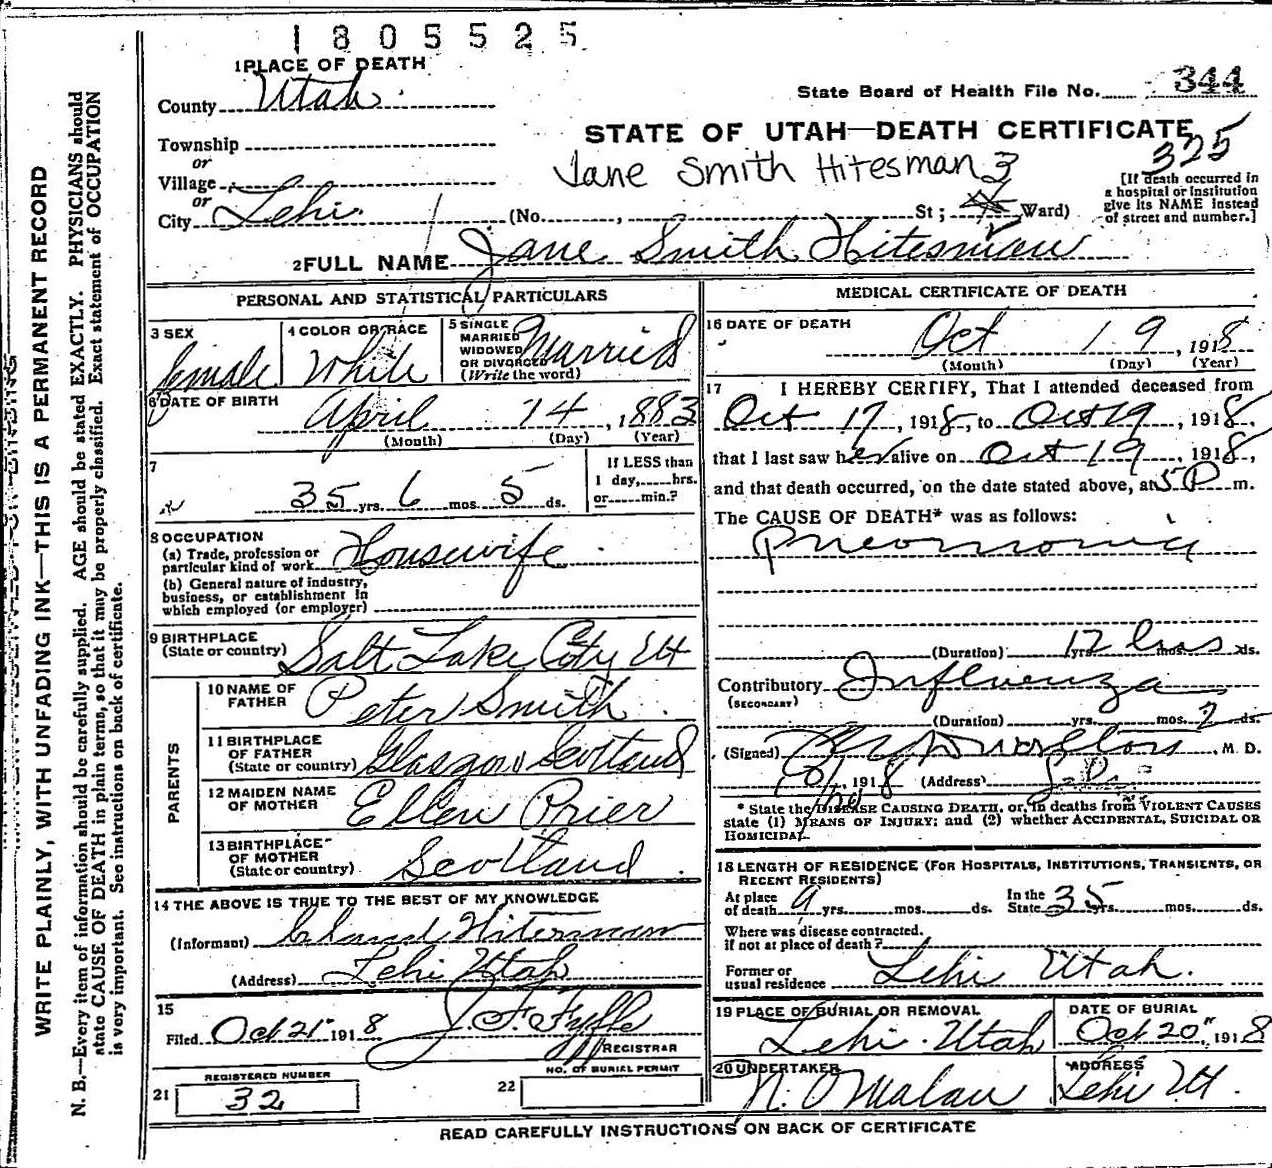 1805525
1 PLACE OF DEATH
County Utah
State Board of Health File No. 344
STATE OF UTAH—DEATH CERTIFICATE
325
Township
or
Village
or
City Lehi (No. , St; Ward)
Jane Smith Hitesman 3
[If death occurred in
a hospital or institution
give its NAME instead
of street and number.]
2 FULL NAME Jane Smith Hitesman
PERSONAL AND STATISTICAL PARTICULARS
3 SEX female
4 COLOR OR RACE White
5 SINGLE
MARRIED
WIDOWED
OR DIVORCED
(Write the word)
Married
6 DATE OF BIRTH
April 14, 1883
(Month) (Day) (Year)
7
35 yrs. 6 mos. 5 ds.
If LESS than
1 day, hrs.
or min.?
8 OCCUPATION
(a) Trade, profession or
particular kind of work Housewife
(b) General nature of industry,
business, or establishment in
which employed (or employer)
9 BIRTHPLACE
(State or country) Salt Lake City Ut
PARENTS
10 NAME OF
FATHER Peter Smith
11 BIRTHPLACE
OF FATHER
(State or country) Glasgow Scotland
12 MAIDEN NAME
OF MOTHER Ellen Prier
13 BIRTHPLACE
OF MOTHER
(State or country) Scotland
14 THE ABOVE IS TRUE TO THE BEST OF MY KNOWLEDGE
(Informant) Hitesman
(Address) Lehi Utah
15
Filed Oct 21 1918 J. F. Fyffe
REGISTRAR
REGISTERED NUMBER
21 32
NO. OF BURIAL PERMIT
22
MEDICAL CERTIFICATE OF DEATH
16 DATE OF DEATH
Oct 19, 1918
(Month) (Day) (Year)
17 I HEREBY CERTIFY, That I attended deceased from
Oct 17, 1918, to Oct 19, 1918,
that I last saw her alive on Oct 19, 1918,
and that death occurred, on the date stated above, at 5 P m.
The CAUSE OF DEATH* was as follows:
Pneomonia
(Duration) 12 hrs yrs. mos. ds.
Contributory Influenza
(SECONDARY)
(Duration) yrs. mos. 2 ds.
(Signed) M. D.
1918 (Address)
* State the DISEASE CAUSING DEATH, or, in deaths from VIOLENT CAUSES
state (1) MEANS OF INJURY; and (2) whether ACCIDENTAL, SUICIDAL OR
HOMICIDAL
18 LENGTH OF RESIDENCE (FOR HOSPITALS, INSTITUTIONS, TRANSIENTS, OR
RECENT RESIDENTS)
At place
of death 9 yrs. mos. ds.
In the
State 35 yrs. mos. ds.
Where was disease contracted.
if not at place of death?
Former or
usual residence Lehi Utah.
19 PLACE OF BURIAL OR REMOVAL
Lehi Utah
DATE OF BURIAL
Oct 20", 1918
20 UNDERTAKER
ADDRESS
Lehi Ut.
READ CAREFULLY INSTRUCTIONS ON BACK OF CERTIFICATE
WRITE PLAINLY, WITH UNFADING INK—THIS IS A PERMANENT RECORD
N. B.—Every item of information should be carefully supplied. AGE should be stated EXACTLY. PHYSICIANS should
state CAUSE OF DEATH in plain terms, so that it may be properly classified. Exact statement of OCCUPATION
is very important. See instructions on back of certificate.